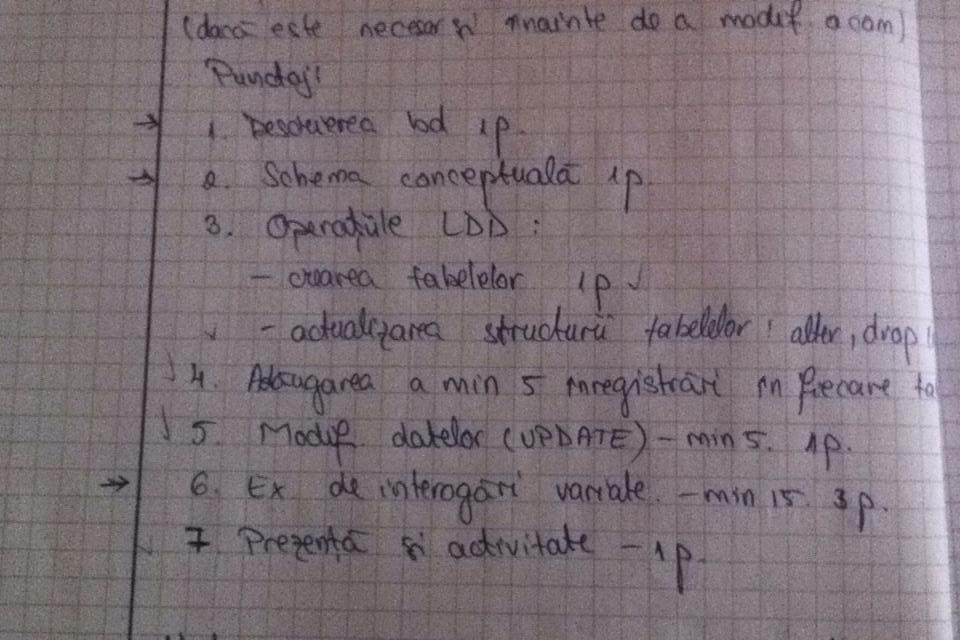 (dacă este necesar și înainte de a modif. a com)
Punctaj:
→ 1. Descrierea bd 1p.
→ 2. Schema conceptuală 1p.
3. Operațiile LDD :
- crearea tabelelor 1p ✓
✓ - actualizarea structurii tabelelor : alter, drop
✓ 4. Adăugarea a min 5 înregistrări în fiecare ta
✓ 5. Modif datelor (UPDATE) - min 5. 1p.
→ 6. Ex de interogări variate. - min 15. 3p.
7 Prezență și activitate - 1p.